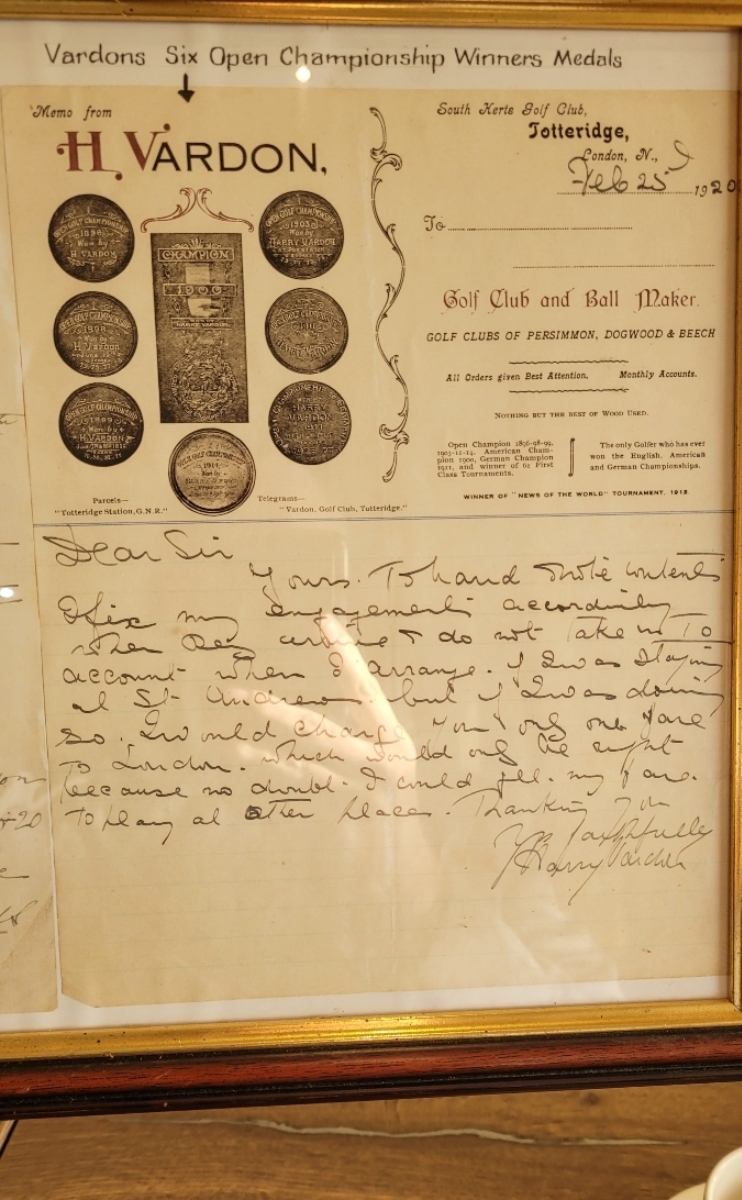 Vardons Six Open Championship Winners Medals
Memo from
H. VARDON,
South Herts Golf Club,
Totteridge,
London, N.,
Feb 25 1920
To
OPEN GOLF CHAMPIONSHIP
1896
Won by
H. VARDON
OPEN GOLF CHAMPIONSHIP
1903
Won by
HARRY VARDON
CHAMPION
1900
HARRY VARDON
1898
H. VARDON
HARRY VARDON
OPEN GOLF CHAMPIONSHIP
1899
Won by
H. VARDON
HARRY
VARDON
1911
1914
Golf Club and Ball Maker.
GOLF CLUBS OF PERSIMMON, DOGWOOD & BEECH
All Orders given Best Attention. Monthly Accounts.
NOTHING BUT THE BEST OF WOOD USED.
Open Champion 1896-98-99,
1903-11-14, American Cham-
pion 1900, German Champion
1911, and winner of 62 First
Class Tournaments.
The only Golfer who has ever
won the English, American
and German Championships.
WINNER OF "NEWS OF THE WORLD" TOURNAMENT, 1912.
Parcels—
"Totteridge Station, G.N.R."
Telegrams—
"Vardon, Golf Club, Totteridge."
Dear Sir
Yours. To hand & note contents
I fix my engagements accordingly
when they & do not take in to
account when I arrange. if I was staying
at St Andrews. but if I was doing
so. I would charge you only one fare
To London. which would only be right
because no doubt. I could get. my fare.
to play at other places. Thanking you
Yrs faithfully
Harry Vardon